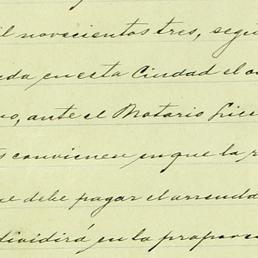 il novecientos tres, segú
eda en esta Ciudad el
o, ante el Notario Lice
s convienen en que la
ue debe pagar el arrenda
dividirá en la propor